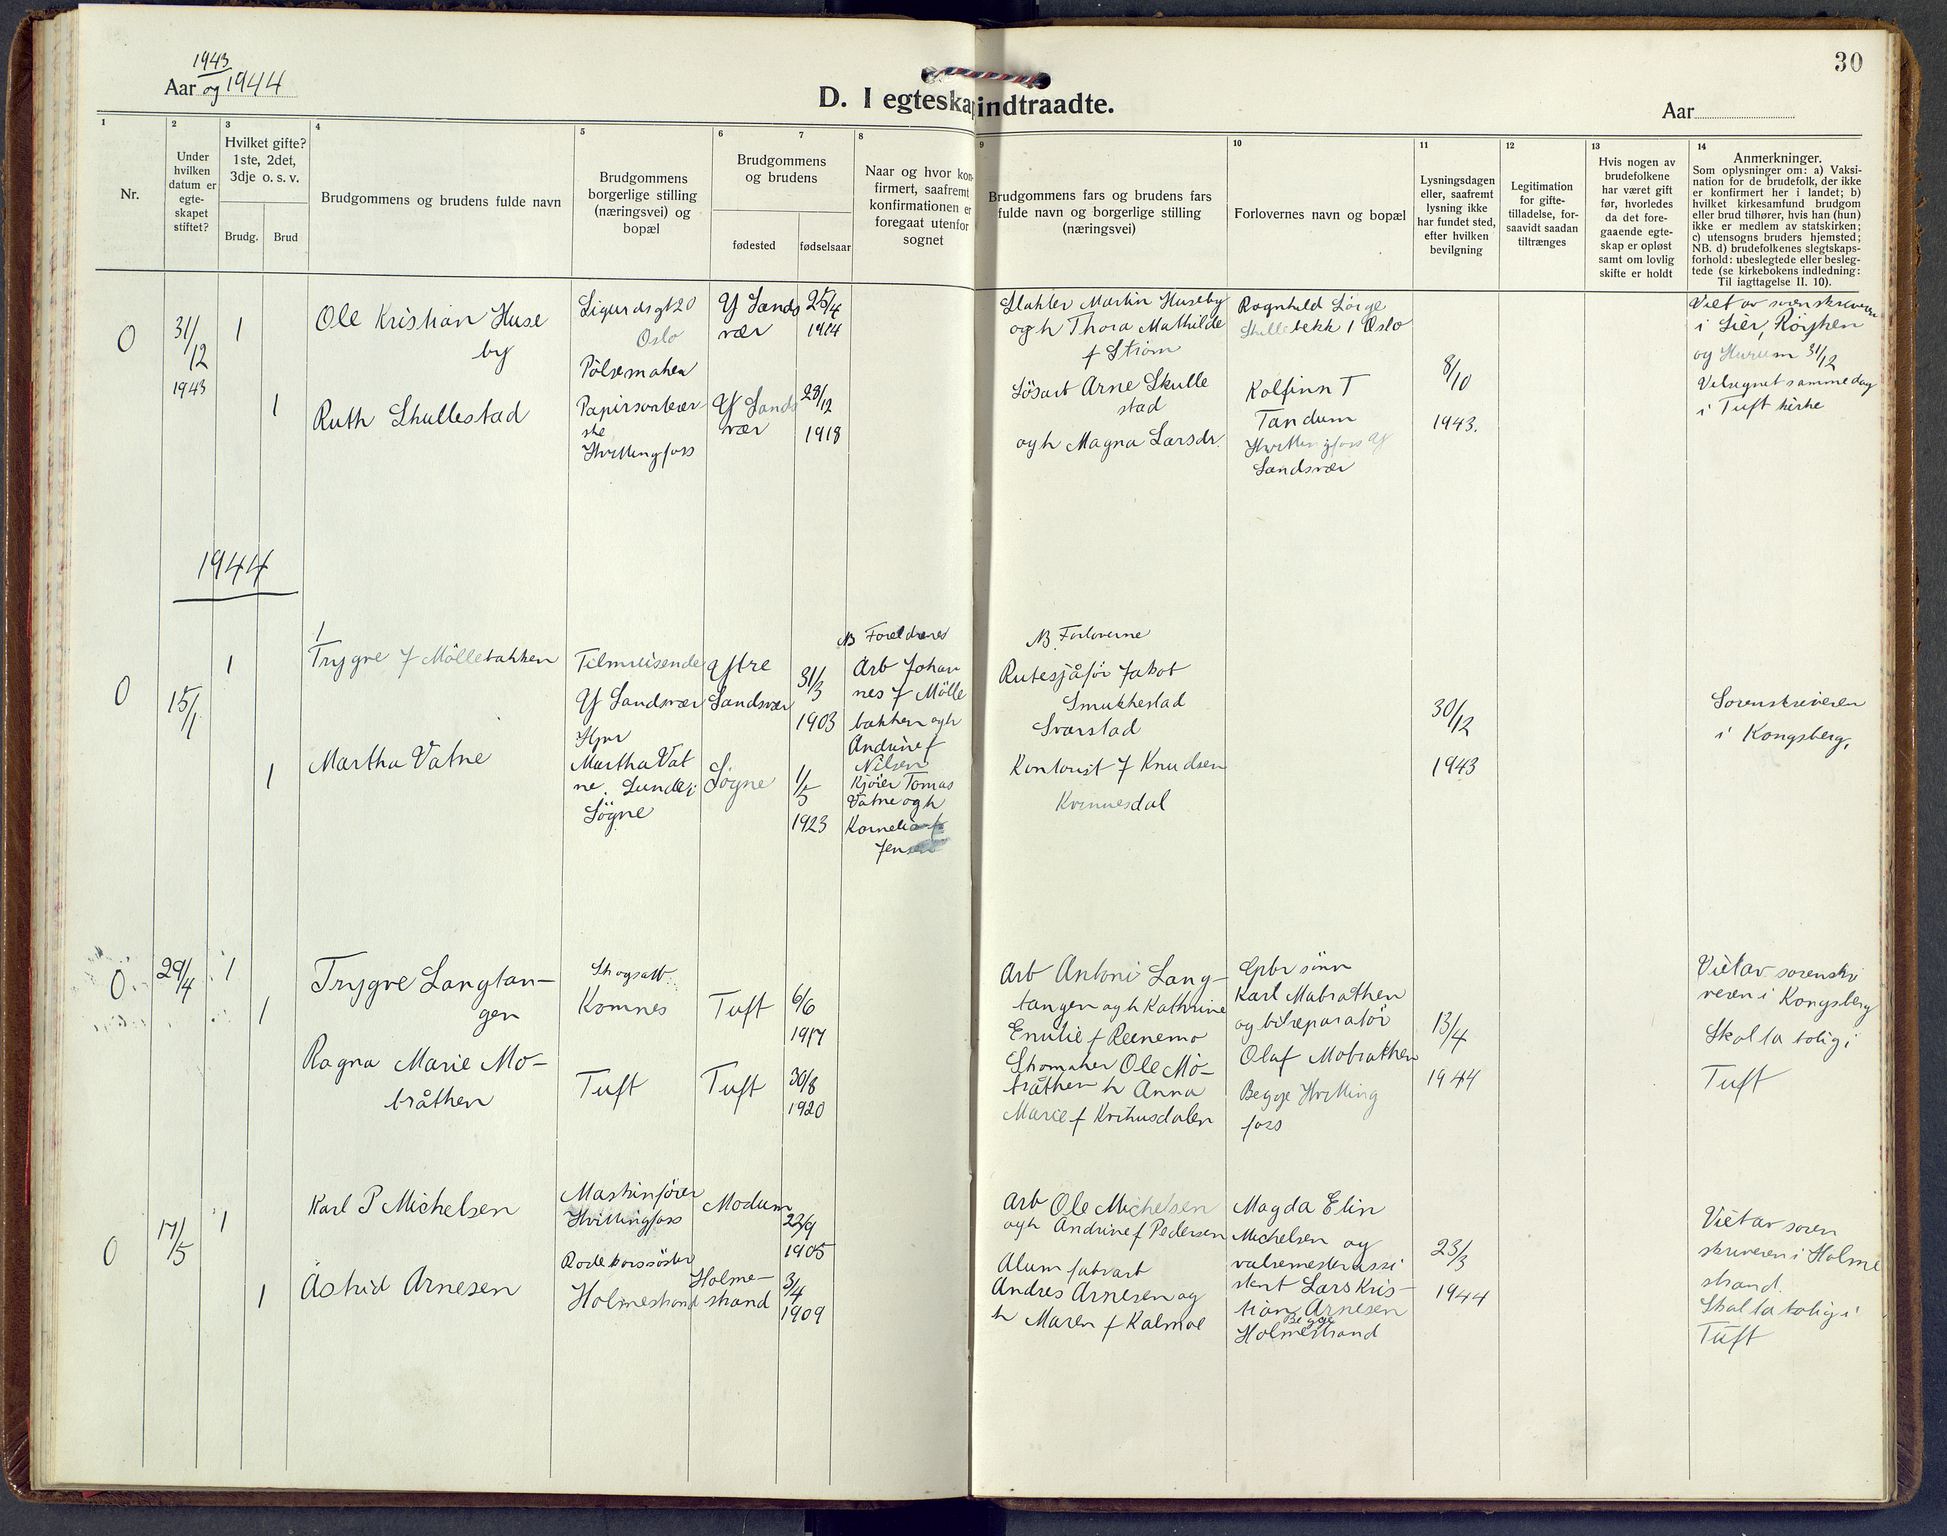 1943
Aar og 1944
D. I egteskap indtraadte.
Aar
30
1
2
3
4
5
6
7
8
9
10
11
12
13
14
Nr.
Under hvilken datum er egte-skapet stiftet?
Hvilket gifte? 1ste, 2det, 3dje o. s. v.
Brudg.
Brud
Brudgommens og brudens fulde navn
Brudgommens borgerlige stilling (næringsvei) og bopæl
Brudgommens og brudens
fødested
fødselsaar
Naar og hvor kon-firmert, saafremt konfirmationen er foregaat utenfor sognet
Brudgommens fars og brudens fars fulde navn og borgerlige stilling (næringsvei)
Forlovernes navn og bopæl
Lysningsdagen eller, saafremt lysning ikke har fundet sted, efter hvilken bevilgning
Legitimation for gifte-tilladelse, for-saavidt saadan tiltrænges
Hvis nogen av brudefolkene har været gift før, hvorledes da det fore-gaaende egte-skap er opløst samt om lovlig skifte er holdt
Anmerkninger.
Som oplysninger om: a) Vaksi-nation for brudefolk, der ikke er konfirmert her i landet; b) hvilket kirkesamfund brudgom eller brud tilhører, hvis han (hun) ikke er medlem av statskirken; c) utensogns bruders hjemsted; NB. d) brudefolkenes slegtskaps-forhold: ubeslegtede eller besleg-tede (se kirkebokens indledning: Til iagttagelse II. 10).
0
31/12
1943
1
Ole Kristian Huse
by
Sigurdsgt 20
Oslo
Pølsemaker
Y Sands
vær
25/4
1914
Slakter Martin Huseby
og h Thora Mathilde
f Strøm
Ragnhild
bekk 1 Oslo
8/10
1943.
Viet av sorenskriveren
i Lier, Røyken
og Hurum 31/12
Velsignet samme dag
i Tuft kirke
1
Ruth Skullestad
Papirsvarbeider-
ske
Hvittingfoss
Y Sands
vær
28/12
1918
Løsarb Arne Skulle
stad
og h Magna Larsdr.
Kolfinn T
Tandum
Hvittingfoss Y
Sandsvær
1944
0
15/1
1
Trygve J Møllebakken
Y Sandsvær
Ytre
Sandsvær
31/3
1903
NB Foreldrenes
Arb Johan
nes J Mølle
bakken og h
Andrine f
Nilsen
NB. Forloverne
Rutesjåfør Jakob
Smukkestad
Svarstad
30/12
1943
Sorenskriveren
i Kongsberg,
1
Martha Vatne
Martha Vat
ne. Lunde i
Søgne
Søgne
1/5
1923
Tomas
Vatne og h
Kornelia f
Jensen
Kontorist J Knudsen
Kvinnesdal
0
29/4
1
Trygve Langtan-
gen
Skogsarb.
Komnes
Tuft
6/6
1917
Arb Antoni Lang-
tangen og h Kathrine
Emilie f Reenemo
Gbr sønn
Karl Mobråthen
og bilreparatør
Olaf Mobråthen
Begge Hvitting
foss
13/4
1944
Viet av sorenskri
veren i Kongsberg
Skal ta bolig i
Tuft
1
Ragna Marie Mo-
bråthen
Tuft
Tuft
30/8
1920
Skomaker Ole Mo-
bråthen h Anna
Marie f Kvihusdalen
0
17/5
1
Karl P Michelsen
Maskinfører
Hvittingfoss
Modum
22/9
1905
Arb Ole Michelsen
og h Andrine f Pedersen
Magda Elin
Michelsen og
valsemesterassi
stent Lars Kris-
tian Arnesen
Begge
Holmestrand
23/3
1944
Viet av soren
skriveren i Holme
strand.
Skal ta bolig i
Tuft
1
Åstrid Arnesen
Rødekorssøster
Holmestrand
Holme-
strand
3/4
1909
Alum fabrarb
Andres Arnesen og
h Maren f Kalmoe